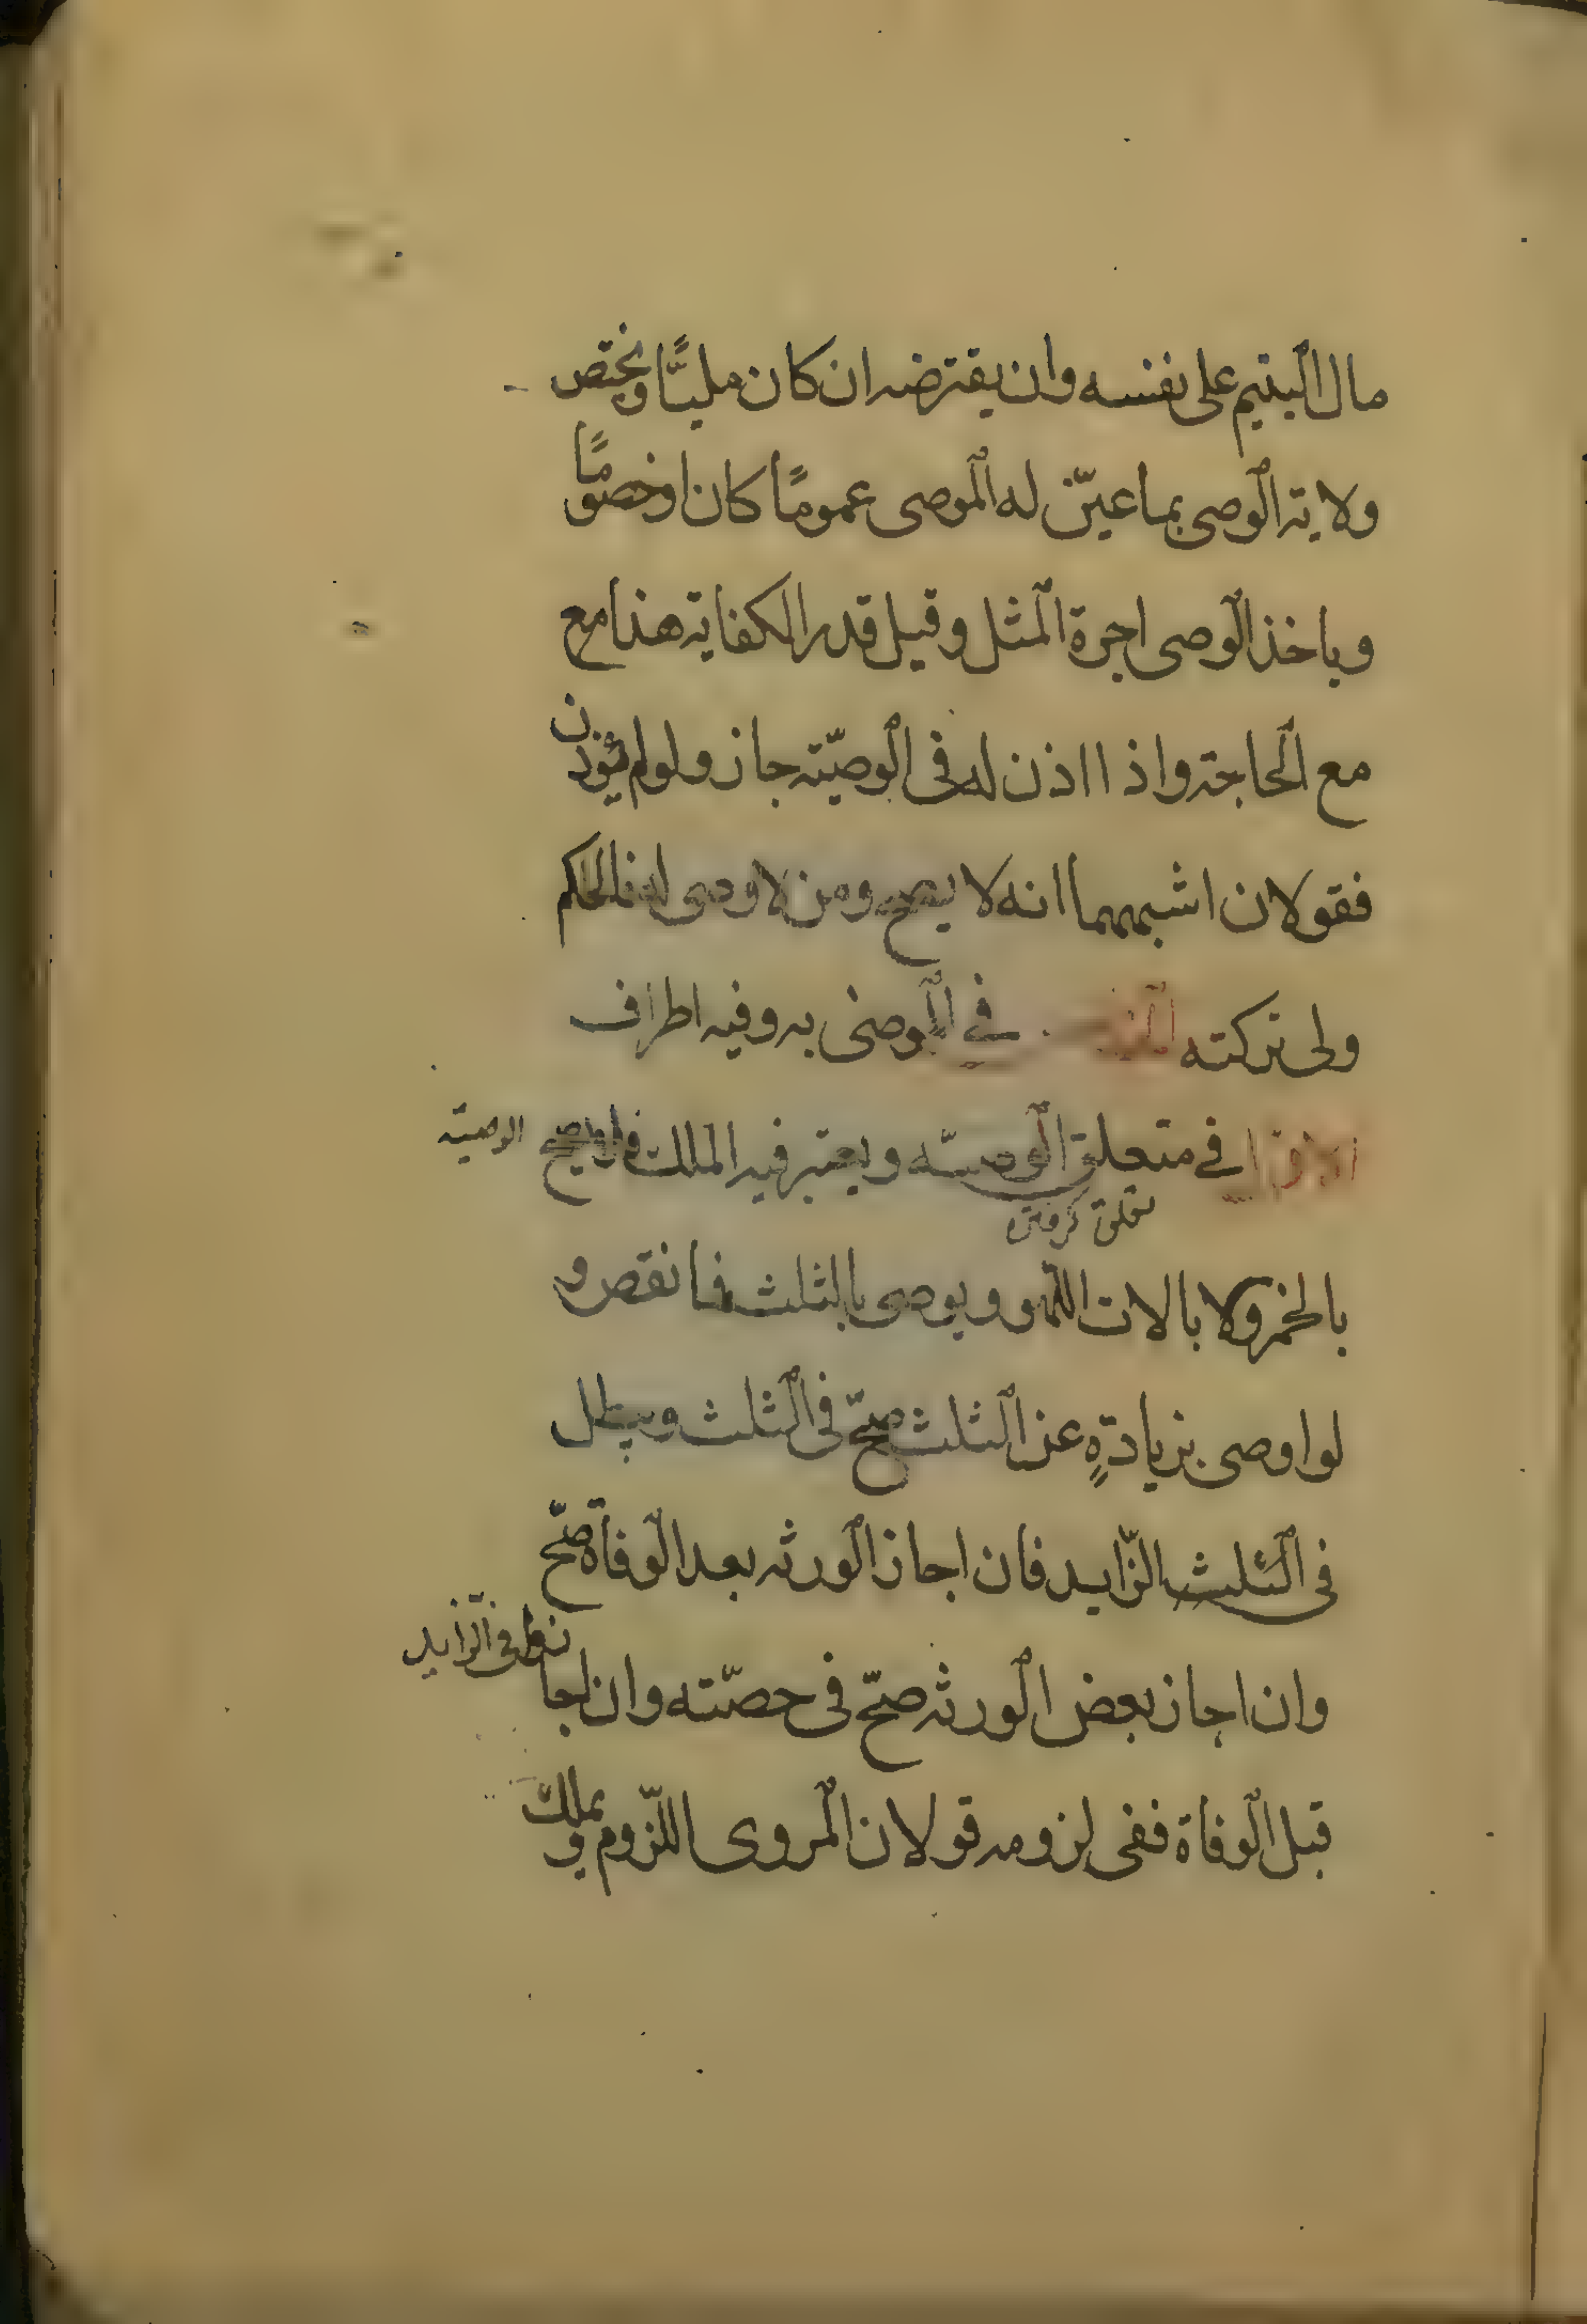 مال اليتيم على نفسه وان يقترضه ان كان مليًّا ويختص
ولاية الوصى بما عيّن له الموصى عمومًا كان او خصوصًا
وياخذ الوصى اجرة المثل وقيل قدر الكفاية هذا مع
مع الحاجة واذا اذن له فى الوصيّة جاز ولو لم يؤذن
فقولان اشبههما انه لا يصح ومن لا وصى له فالحاكم
ولى تركته في الموصى به وفيه اطراف
الاول في متعلق الوصيّه ويعتبر فيه الملك فلا يصح الوصية
تعلق گرفتن
بالخمر ولا بالات اللهو ويوصى بالثلث فما نقص و
لو اوصى بزيادةٍ عن الثلث صحّ فى الثلث ويبطل
فى الثلث الزّايد فان اجاز الورثه بعد الوفاة صحّ
فى الزايد
وان اجاز بعض الورثه صحّ فى حصّته وان اجاز
قبل الوفاة ففى لزومه قولان المروى اللّزوم ويملك